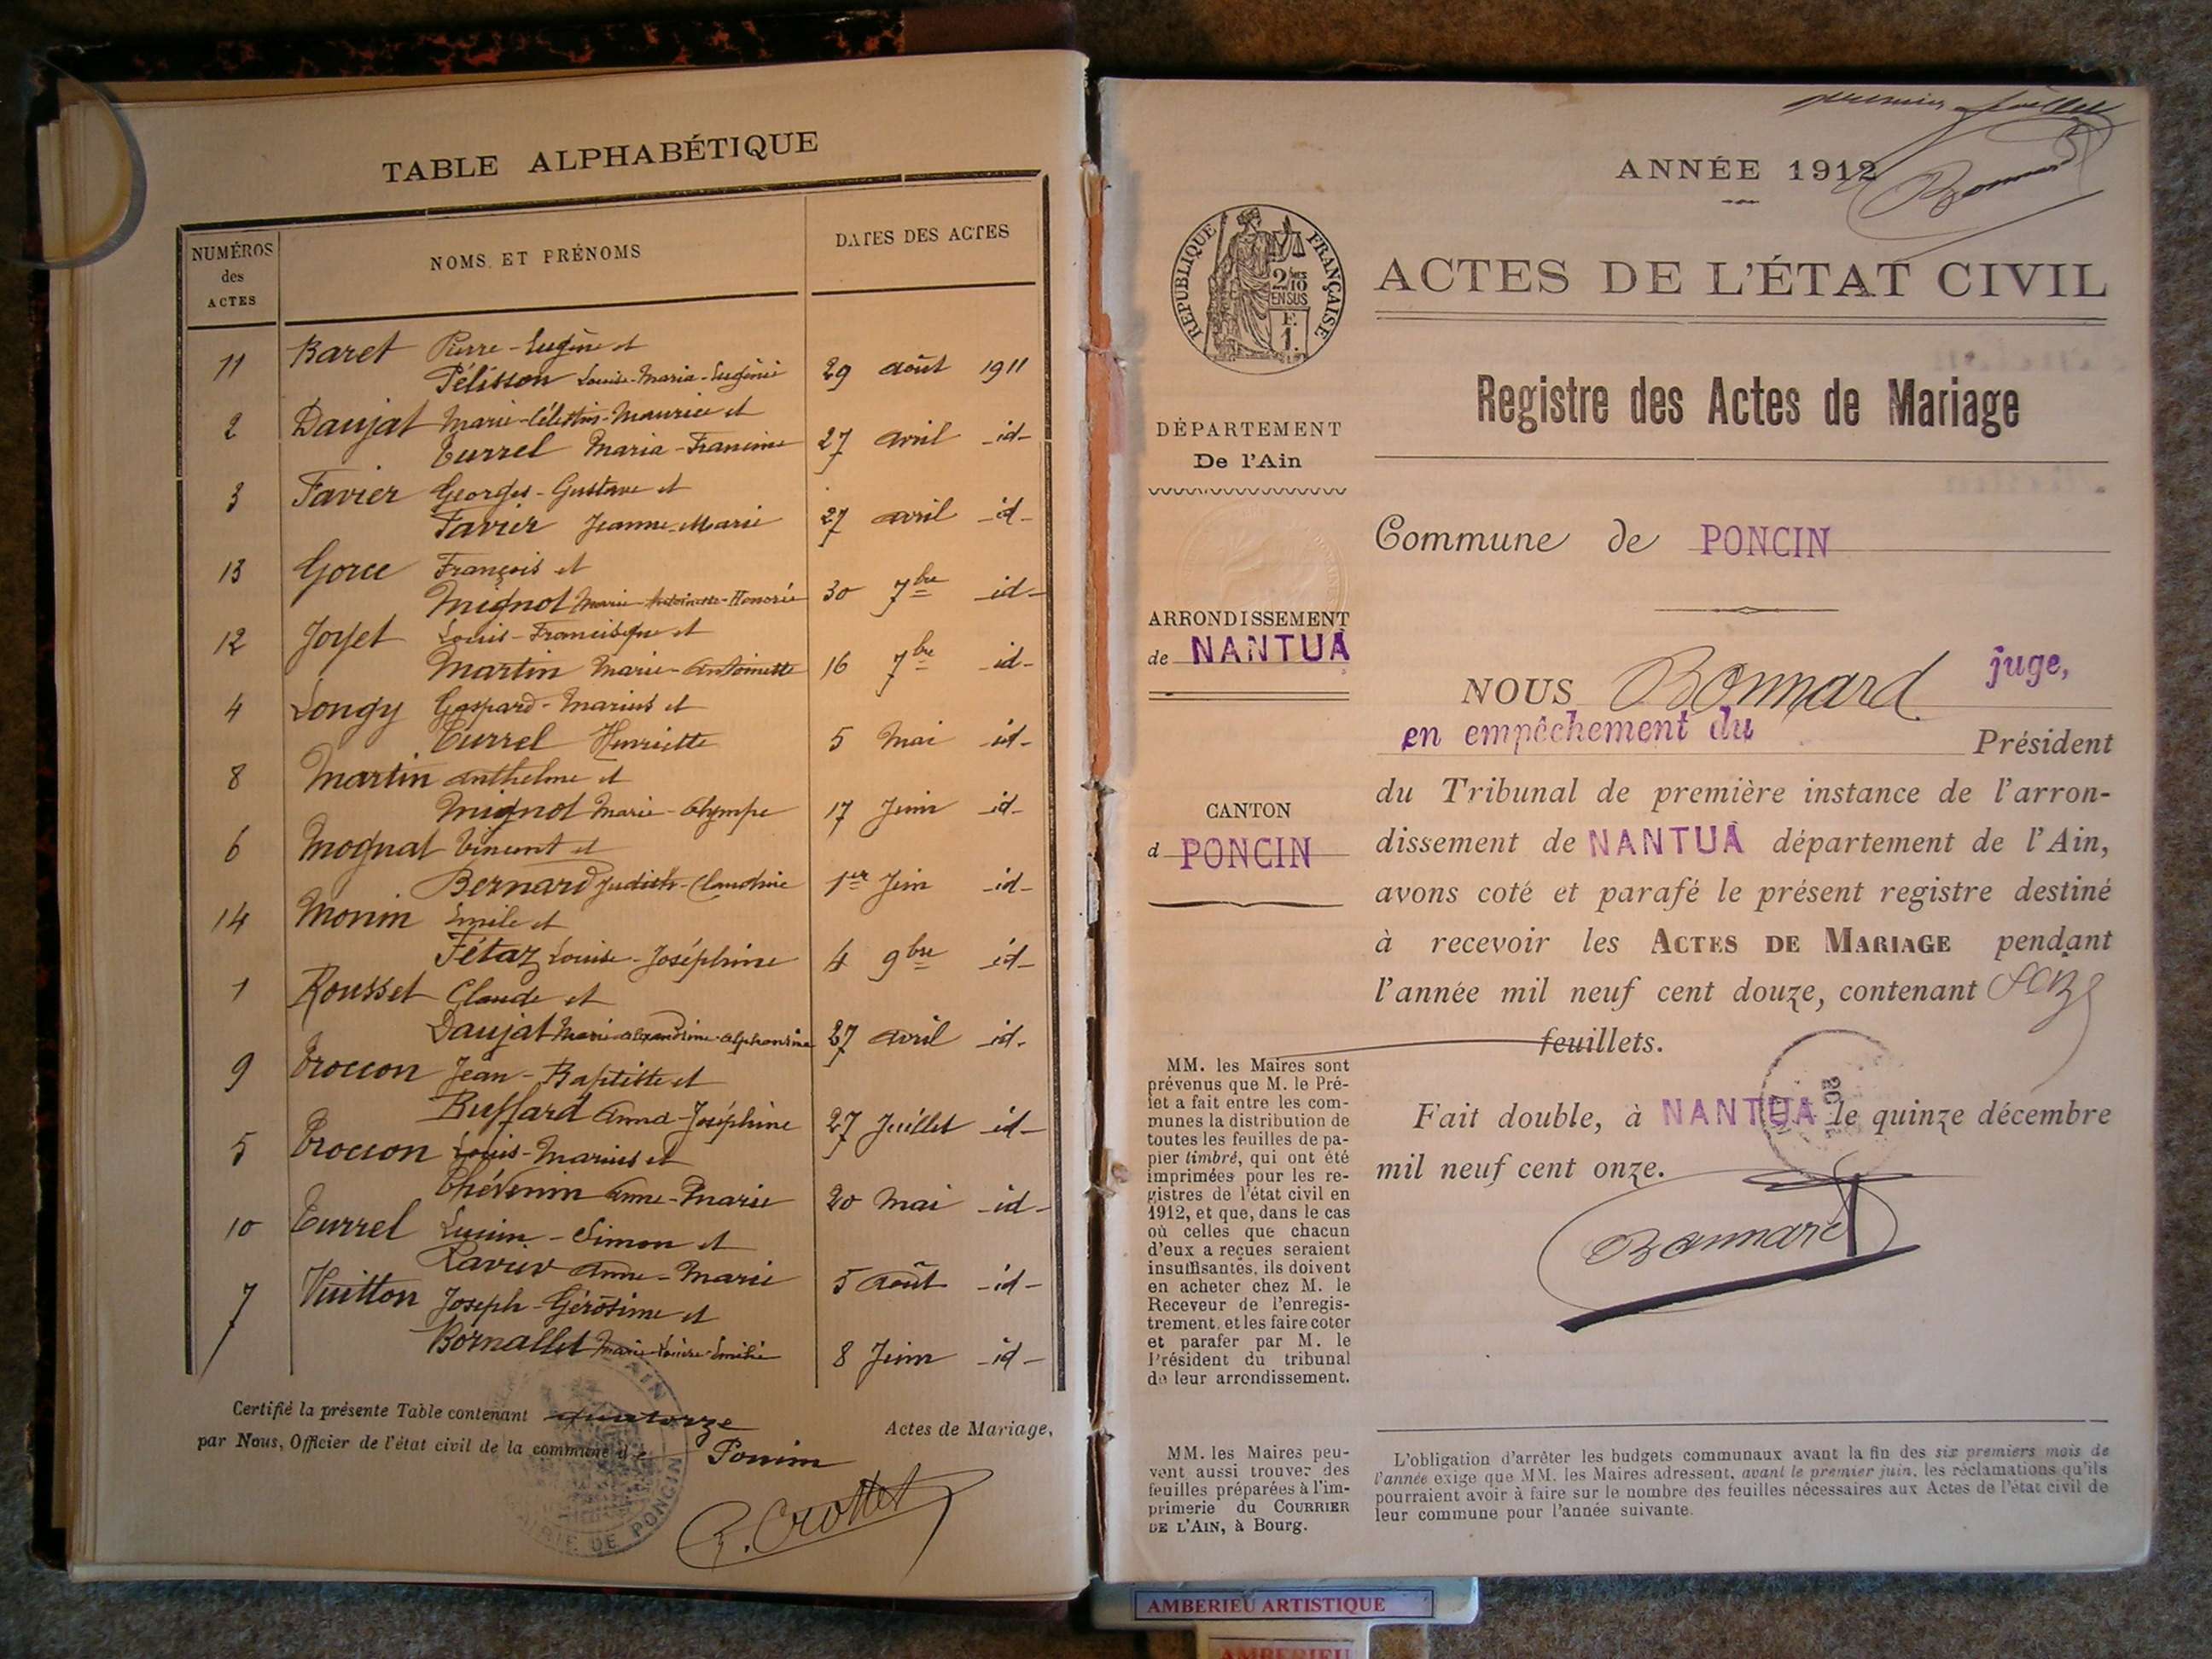 TABLE ALPHABÉTIQUE
NUMÉROS des ACTES
NOMS ET PRÉNOMS
DATES DES ACTES
11 Baret Pierre-Eugène et
Pélisson Louise-Maria-Eugénie 29 août 1911
2 Daujat Marie-Célestin-Maurice et
Turrel Maria-Francine 27 avril -id-
3 Favier Georges-Gustave et
Favier Jeanne-Marie 27 avril -id-
13 Gorce François et
Mignot Marie-Antoinette-Honorée 30 7bre -id-
12 Joyet Louis-Francisque et
Martin Marie-Antoinette 16 7bre -id-
4 Longy Gaspard-Marius et
Turrel Henriette 5 Mai -id-
8 Martin Anthelme et
Mignot Marie-Olympe 17 Juin -id-
6 Mognat Vincent et
Bernard Judith-Claudine 1er Juin -id-
14 Monin Emile et
Fétaz Louise-Joséphine 4 9bre -id-
1 Rousset Claude et
Daujat Marie-Alexandrine-Alphonsine 27 avril -id-
9 Troccon Jean-Baptiste et
Buffard Anna-Joséphine 27 Juillet -id-
5 Troccon Louis-Marius et
Thévenin Anne-Marie 20 Mai -id-
10 Turrel Lucien-Simon et
Anne-Marie 5 Août -id-
7 Vuitton Joseph-Gérôsime et
Bornallet Marie-Louise-Emilie 8 Juin -id-
Certifié la présente Table contenant quatorze Actes de Mariage,
par Nous, Officier de l'état civil de la commune de Poncin
MAIRIE DE PONCIN AIN
Crottet
premier feuillet
Bonnard
ANNÉE 1912
RÉPUBLIQUE FRANÇAISE
2/10 EN SUS
F. 1.
ACTES DE L'ÉTAT CIVIL
Registre des Actes de Mariage
DÉPARTEMENT
De l'Ain
Commune de PONCIN
ARRONDISSEMENT
de NANTUA
CANTON
d PONCIN
NOUS Bonnard juge,
en empêchement du Président
du Tribunal de première instance de l'arron-
dissement de NANTUA département de l'Ain,
avons coté et parafé le présent registre destiné
à recevoir les ACTES DE MARIAGE pendant
l'année mil neuf cent douze, contenant seize
feuillets.
Fait double, à NANTUA le quinze décembre
mil neuf cent onze.
Bonnard
MM. les Maires sont
prévenus que M. le Pré-
fet a fait entre les com-
munes la distribution de
toutes les feuilles de pa-
pier timbré, qui ont été
imprimées pour les re-
gistres de l'état civil en
1912, et que, dans le cas
où celles que chacun
d'eux a reçues seraient
insuffisantes, ils doivent
en acheter chez M. le
Receveur de l'enregis-
trement, et les faire coter
et parafer par M. le
Président du tribunal
de leur arrondissement.
MM. les Maires peu-
vent aussi trouver des
feuilles préparées à l'im-
primerie du COURRIER
DE L'AIN, à Bourg.
L'obligation d'arrêter les budgets communaux avant la fin des six premiers mois de
l'année exige que MM. les Maires adressent, avant le premier juin, les réclamations qu'ils
pourraient avoir à faire sur le nombre des feuilles nécessaires aux Actes de l'état civil de
leur commune pour l'année suivante.
AMBERIEU ARTISTIQUE
AMBERIEU